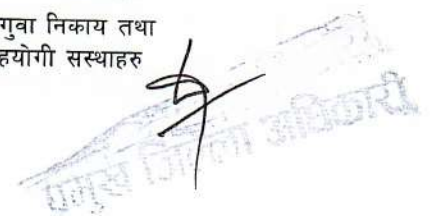 गुवा निकाय तथा
हयोगी सस्थाहरु
प्रमुख जिल्ला अधिकारी